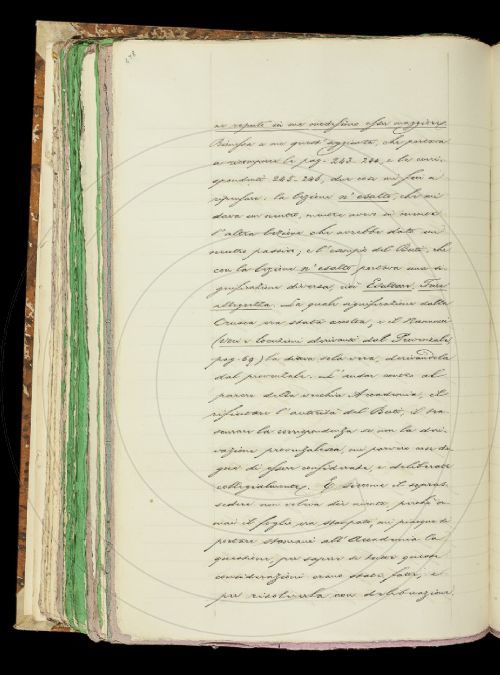 in me medesimo esser maggiore.
Bensì a me quest' aggiunta, che portava
a scomporre le pag. 243-244, e le corri-
spondenti 245-246, due cose mi fen a
ripensare. La lezione n'esalto, che mi
dava un neutro, mentre
l'altra lezione che avrebbe dato un
neutro passivo; e l'esempio del Buti, che
con la lezione n'esalto portava una si-
gnificazione diversa, cioè Esultare, Fare
allegrezza. La quale significazione dalla
Crusca era stata accolta; e il Nannucci
(Voci e locuzioni derivate dal Provenzale,
pag. 69) la diceva sola vera, derivandola
dal provenzale. L'andar contro al
parere della vecchia Accademia, il
rifiutare l'autorità del Buti, il tra-
scurare la corrispondenza se non la deri-
vazione provenzalesca, mi parvero cose de-
gne di esser considerate, e deliberate
collegialmente. E siccome il sopras-
sedere non voleva dir niente, poichè o-
mai il foglio era stampato, mi piacque di
portare stamane all'Accademia la
questione, per sapere se tutte queste
considerazioni erano state fatte, e
per risolverla con deliberazione